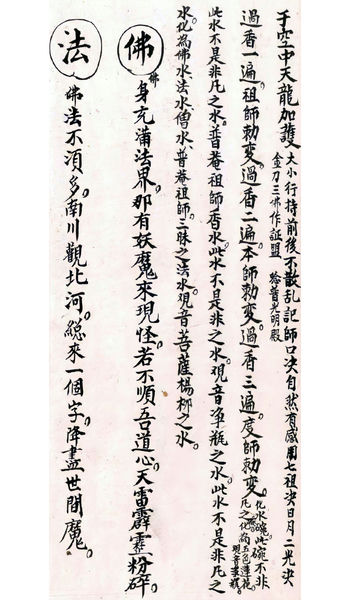 于空中天龍加護 大小行持前後不散乱記師口决自然有感用七祖决日月二光决
金刀三佛作証盟 給普光明殿
過香一遍。祖師勅变。過香二遍。本師勅变。過香三遍。度師勅变。化水碗。此碗不是非凡之碗。化為五色蓮花。观音净瓶。
此水不是非凡之水。普菴祖師香水。此水不是非凡之水。观音净瓶之水。此水不是非凡之
水。化為佛水法水僧水。普菴祖師三昧之法水。观音菩薩楊柳之水。
佛 佛身充滿法界。那有妖魔來現怪。若不順吾道心。天雷霹靂粉碎。
法 佛法不須多。南川觀北河。總來一個字。降盡世間魔。